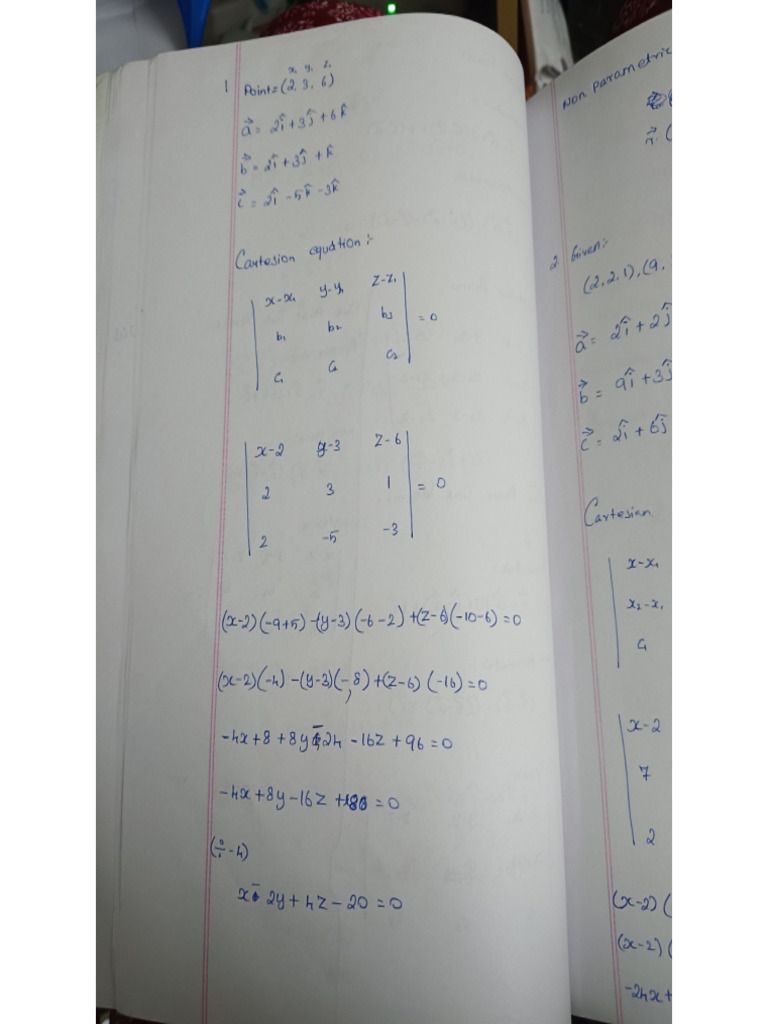 x₁ y₁ z₁
1 Point = (2, 3, 6)
a⃗ = 2î + 3ĵ + 6k̂
b⃗ = 2î + 3ĵ + k̂
c⃗ = 2î - 5k̂ - 3k̂
Cartesion equation :-
| x-x₁ y-y₁ z-z₁ |
| b₁ b₂ b₃ | = 0
| c₁ c₂ c₃ |
| x-2 y-3 z-6 |
| 2 3 1 | = 0
| 2 -5 -3 |
(x-2)(-9+5) -(y-3)(-6-2) +(z-6)(-10-6) = 0
(x-2)(-4) -(y-3)(-8) +(z-6)(-16) = 0
-4x + 8 + 8y - 24 - 16z + 96 = 0
-4x + 8y - 16z + = 0
(÷ -4)
x - 2y + 4z - 20 = 0
Non Parametric
2 Given:-
(2, 2, 1), (9,
a⃗ = 2î + 2ĵ
b⃗ = 9î + 3ĵ
c⃗ = 2î + 6ĵ
Cartesian
| x-x₁
| x₂-x₁
| c₁
| x-2
| 7
| 2
(x-2)(
(x-2)(
-24x+